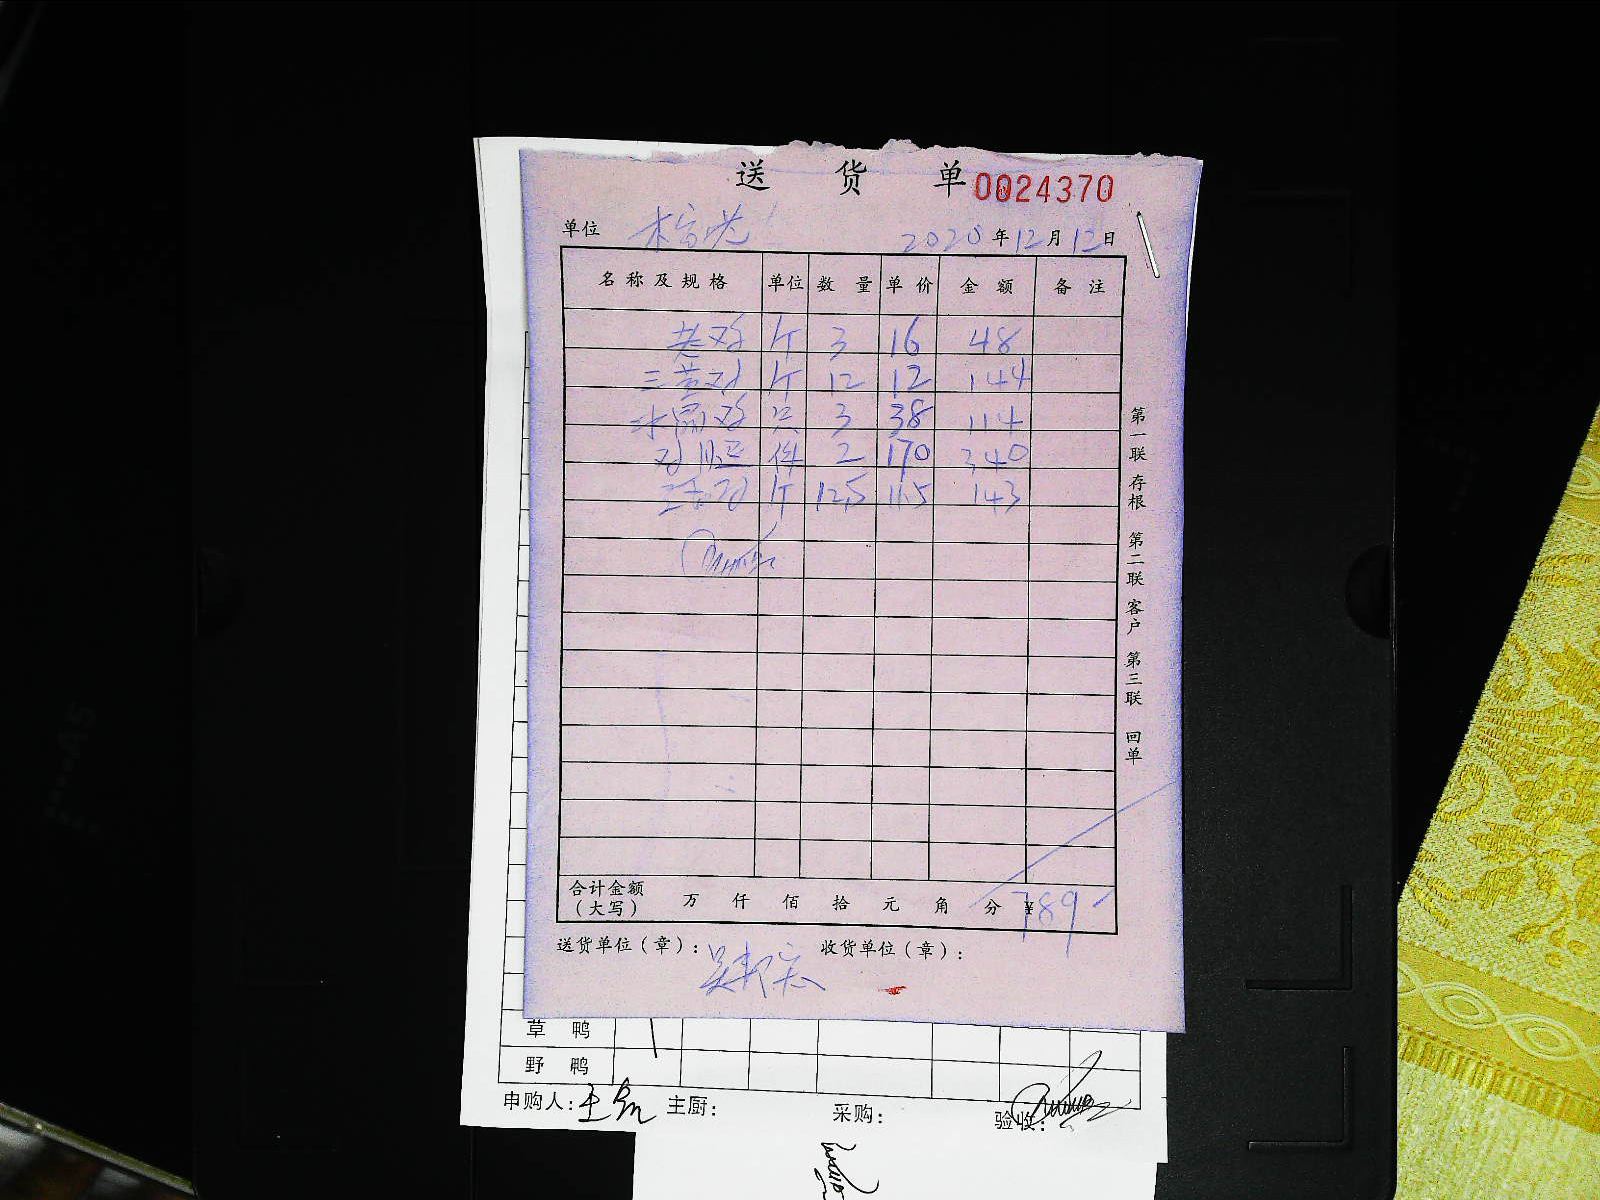 送 货 单 0024370
单位 2020 年 12 月 12 日
名称及规格 单位 数量 单价 金额 备注
老鸡 斤 3 16 48
三黄鸡 斤 12 12 144
水晶鸡 只 3 38 114
件 2 170 340
斤 12.5 11.5 143
第一联 存根 第二联 客户 第三联 回单
合计金额（大写） 万 仟 佰 拾 元 角 分 ¥789
送货单位（章）： 收货单位（章）：
草鸭
野鸭
申购人： 主厨： 采购： 验收：